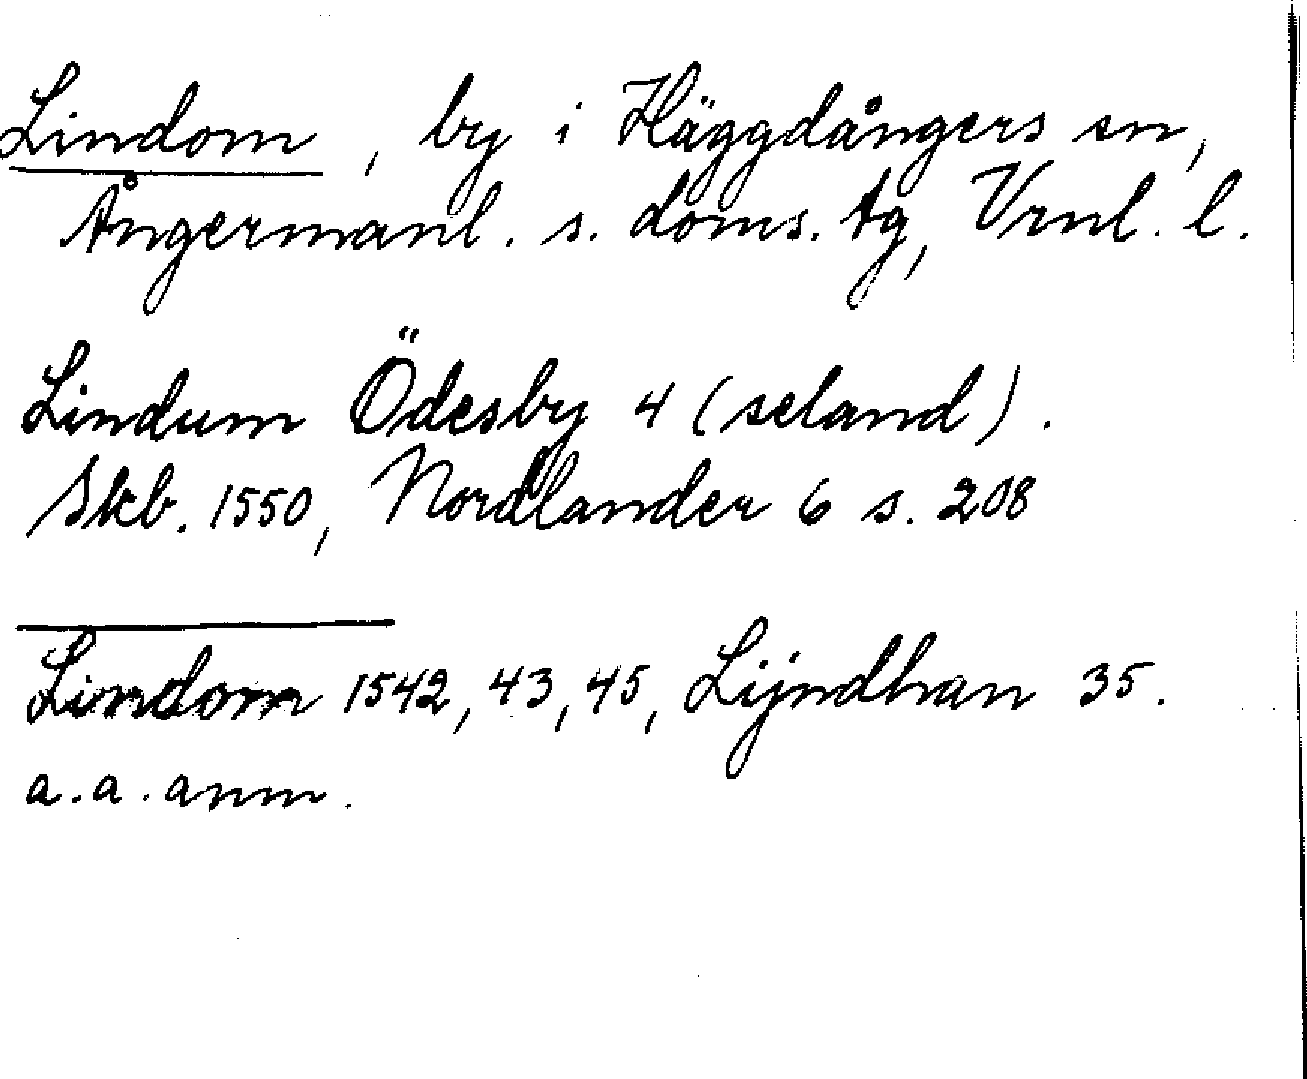 Lindom, by i Häggdångers sn,
Ångermanl. s. doms. tg, Vrnl. l.
Lindum Ödesby 4 (seland).
Skb. 1550, Nordlander 6 s. 208
Lindom 1542, 43, 45, Lijndhan 35.
a. a. anm.